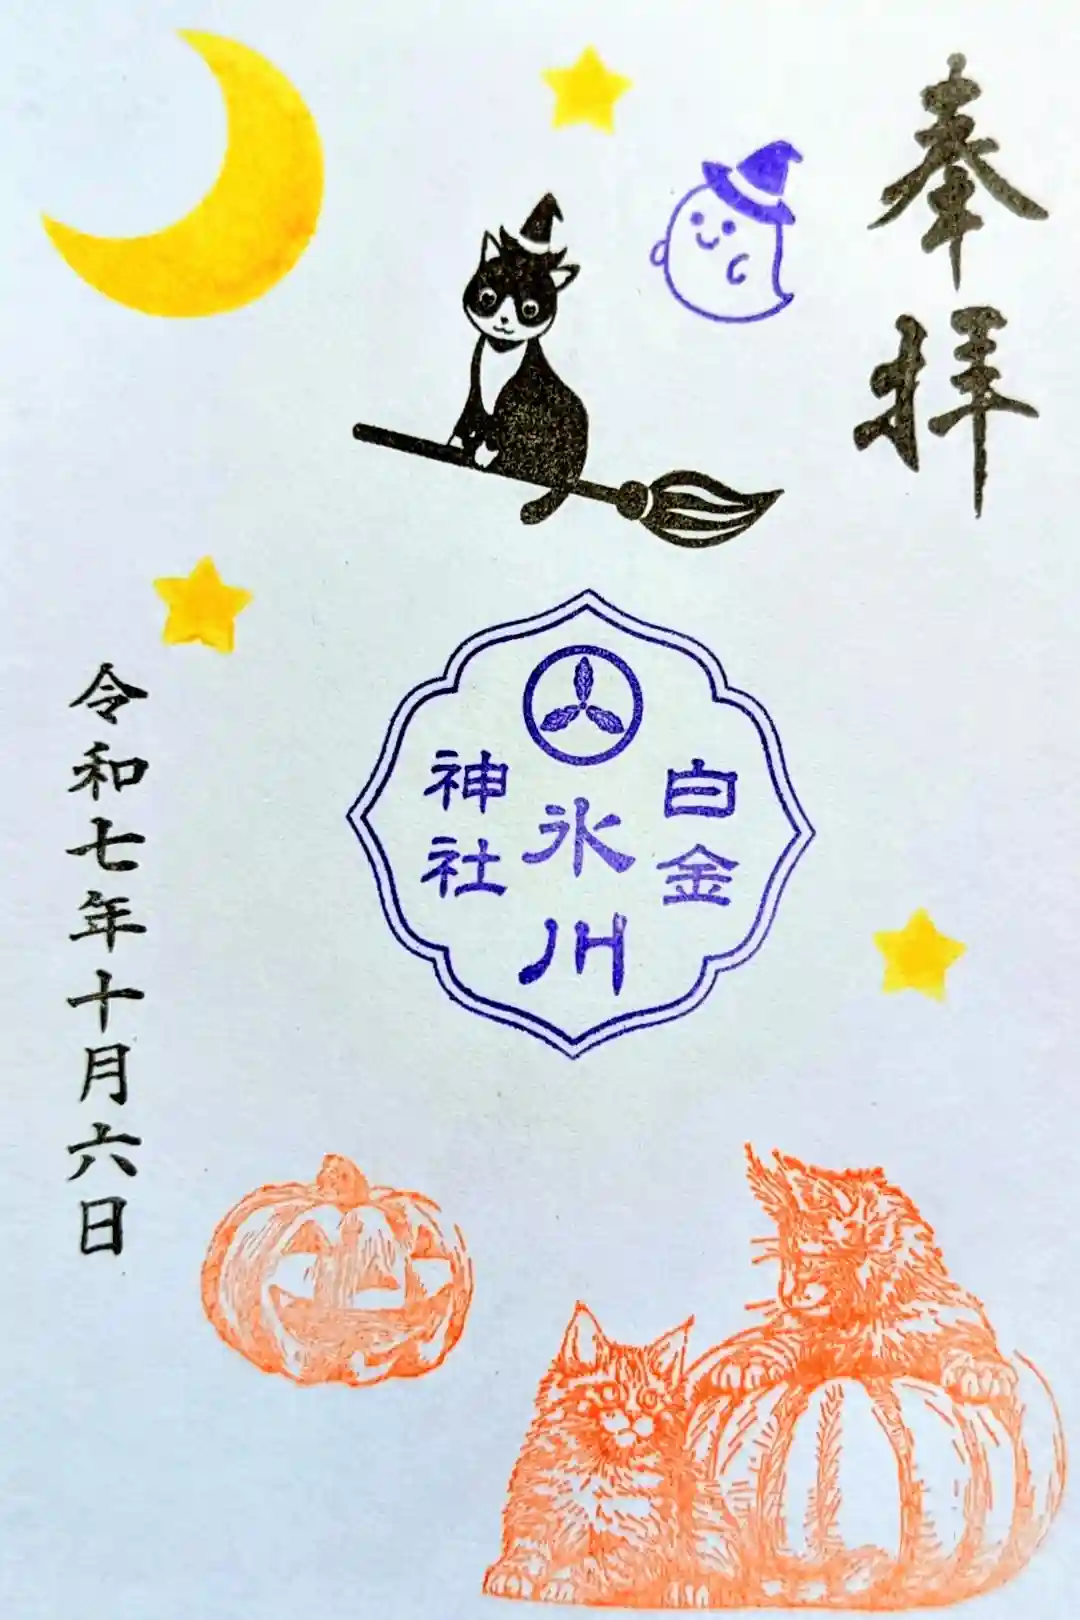 奉拝
白金
氷川
神社
令和七年十月六日